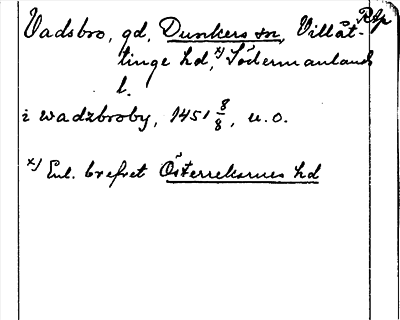 Rkp
Vadsbro, gd, Dunkers sn, Villåt-
tinge hd, x) Södermanlands
l.
i wadzbroby, 1451 8/8, u.o.
x) Enl. brefvet Österrekarnes hd